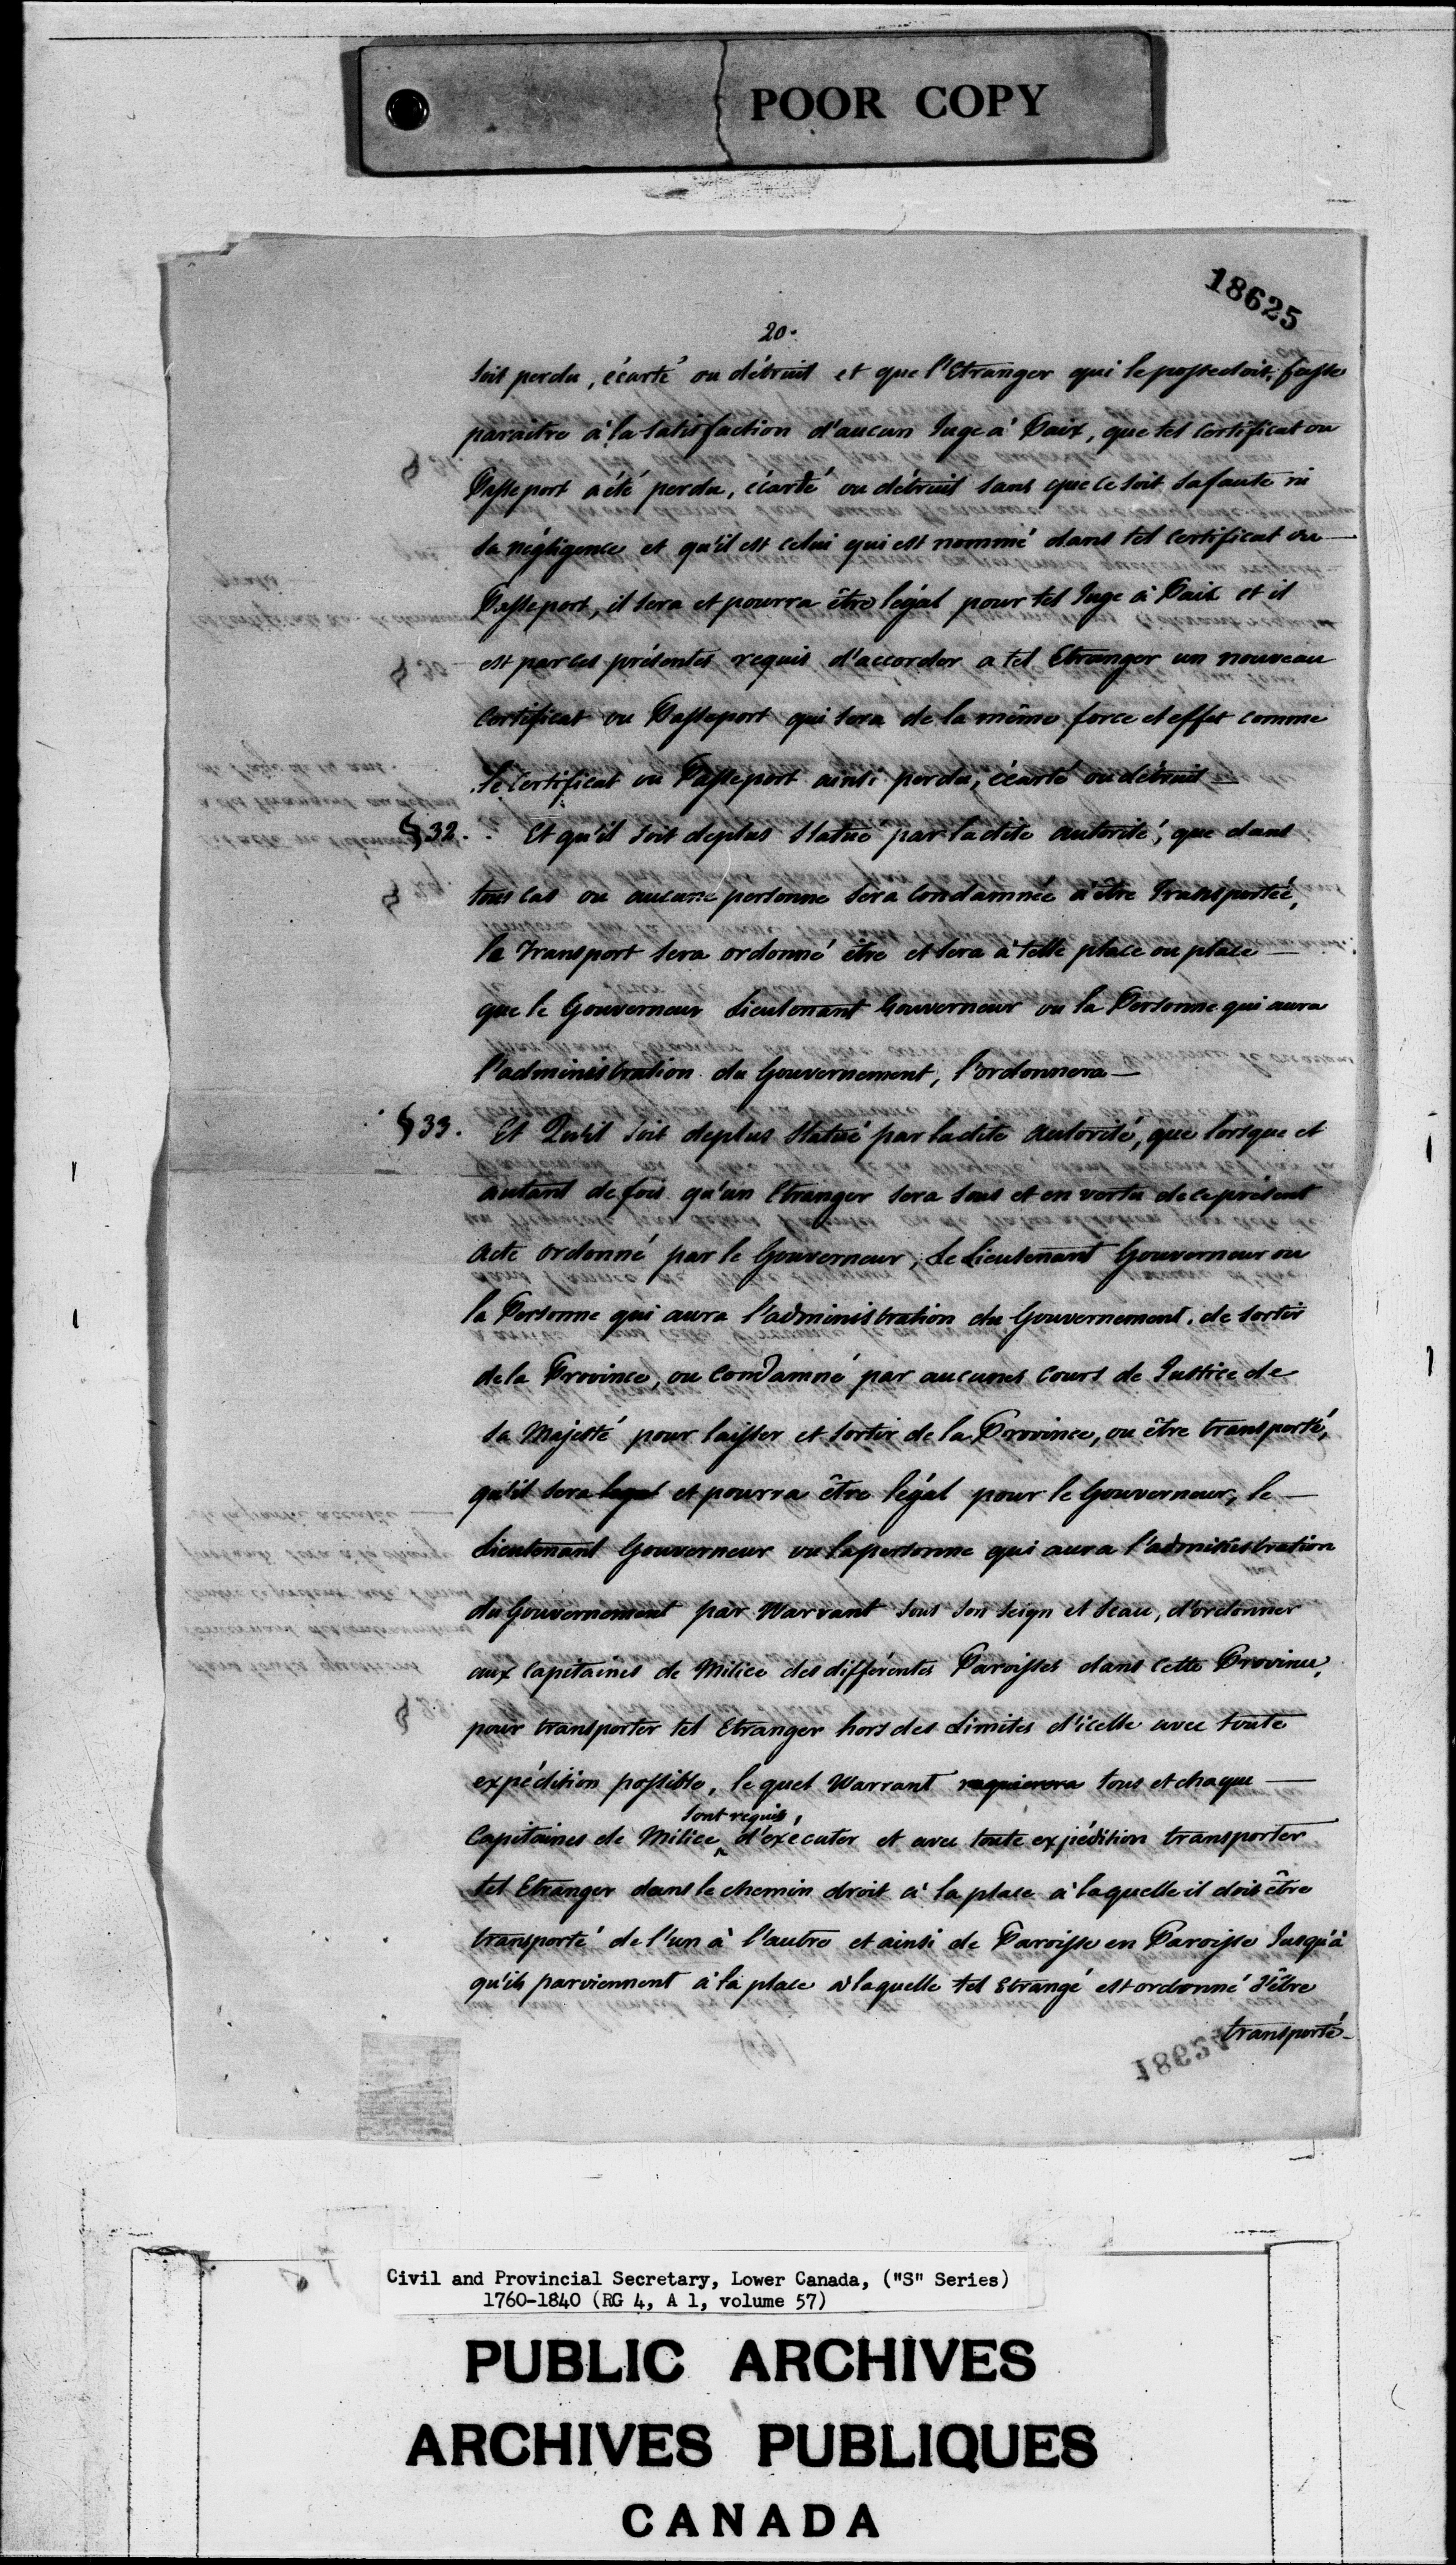 POOR COPY
18625
20.
soit perdu, écarté ou détruit et que l'Etranger qui le possedoit, fasse
paraitre à la satisfaction d'aucun Juge à Paix, que tel certificat ou
Passeport a été perdu, écarté ou détruit sans que ce soit sa faute ni
sa négligence et qu'il est celui qui est nommé dans tel certificat ou —
Passeport, il sera et pourra être légal pour tel Juge à Paix et il
est par ces présentes requis d'accorder a tel Etranger un nouveau
certificat ou Passeport qui sera de la même force et effet comme
le certificat ou Passeport ainsi perdu, écarté ou détruit —
§ 32. Et qu'il soit deplus Statué par la dite autorité, que dans
tous cas ou aucune personne sera condamnée a être Transportée,
le Transport sera ordonné être et sera à telle place ou place —
que le Gouverneur Lieutenant Gouverneur ou la Personne qui aura
l'administration du Gouvernement, l'ordonnera —
§ 33. Et Qu'il soit deplus Statué par la dite Autorité, que lorsque et
autant de fois qu'un Etranger sera sous et en vertu de ce présent
Acte ordonné par le Gouverneur, Le Lieutenant Gouverneur ou
la Personne qui aura l'administration du Gouvernement, de sortir
de la Province, ou condamné par aucunes Cours de Justice de
sa Majesté pour laisser et sortir de la Province, ou être transporté,
qu'il sera legal et pourra être légal pour le Gouverneur, le —
Lieutenant Gouverneur ou la personne qui aura l'administration
du Gouvernement par Warrant sous son seign et Seau, d'ordonner
aux Capitaines de Milice des différentes Paroisses dans cette Province,
pour transporter tel Etranger hors des Limites d'icelle avec toute
expédition possible, le quel Warrant requierera tous et chaque —
sont requis,
Capitaines de Milice d'exécuter et avec toute expédition transporter
tel Etranger dans le chemin droit à la place à laquelle il doit être
transporté de l'un à l'autre et ainsi de Paroisse en Paroisse Jusqu'à
qu'ils parviennent à la place à laquelle tel Etrangé est ordonné d'être
transporté —
18624
Civil and Provincial Secretary, Lower Canada, ("S" Series)
1760-1840 (RG 4, A 1, volume 57)
PUBLIC ARCHIVES
ARCHIVES PUBLIQUES
CANADA